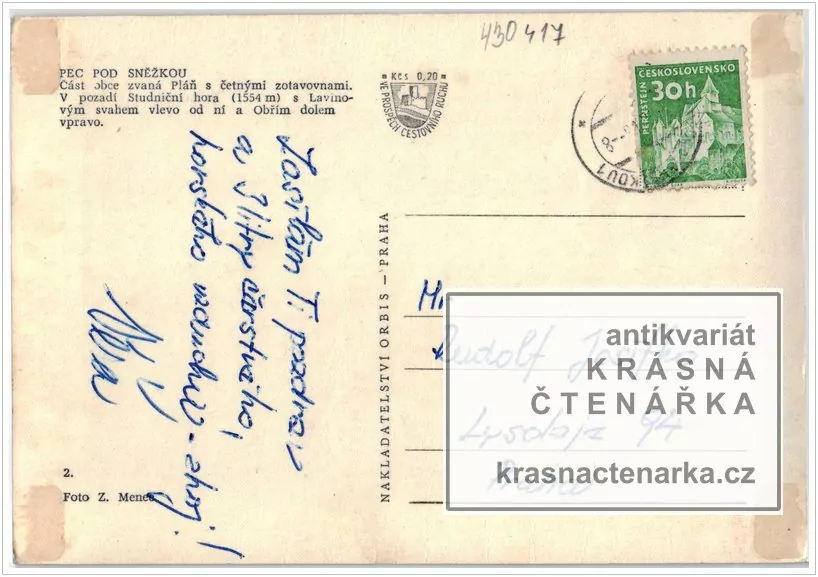 430417
PEC POD SNĚŽKOU
Část obce zvaná Pláň s četnými zotavovnami.
V pozadí Studniční hora (1554 m) s Lavino-
vým svahem vlevo od ní a Obřím dolem
vpravo.
Kčs 0,20
VE PROSPĚCH CESTOVNÍHO RUCHU
ČESKOSLOVENSKO
30h
PERNŠTEJN
KOV 1
Zasílám Ti pozdrav
a 3 litry čerstvého
horského vzduchu - ahoj!
NAKLADATELSTVÍ ORBIS – PRAHA
Rudolf
94
antikvariát
KRÁSNÁ
ČTENÁŘKA
krasnactenarka.cz
2.
Foto Z. Menec